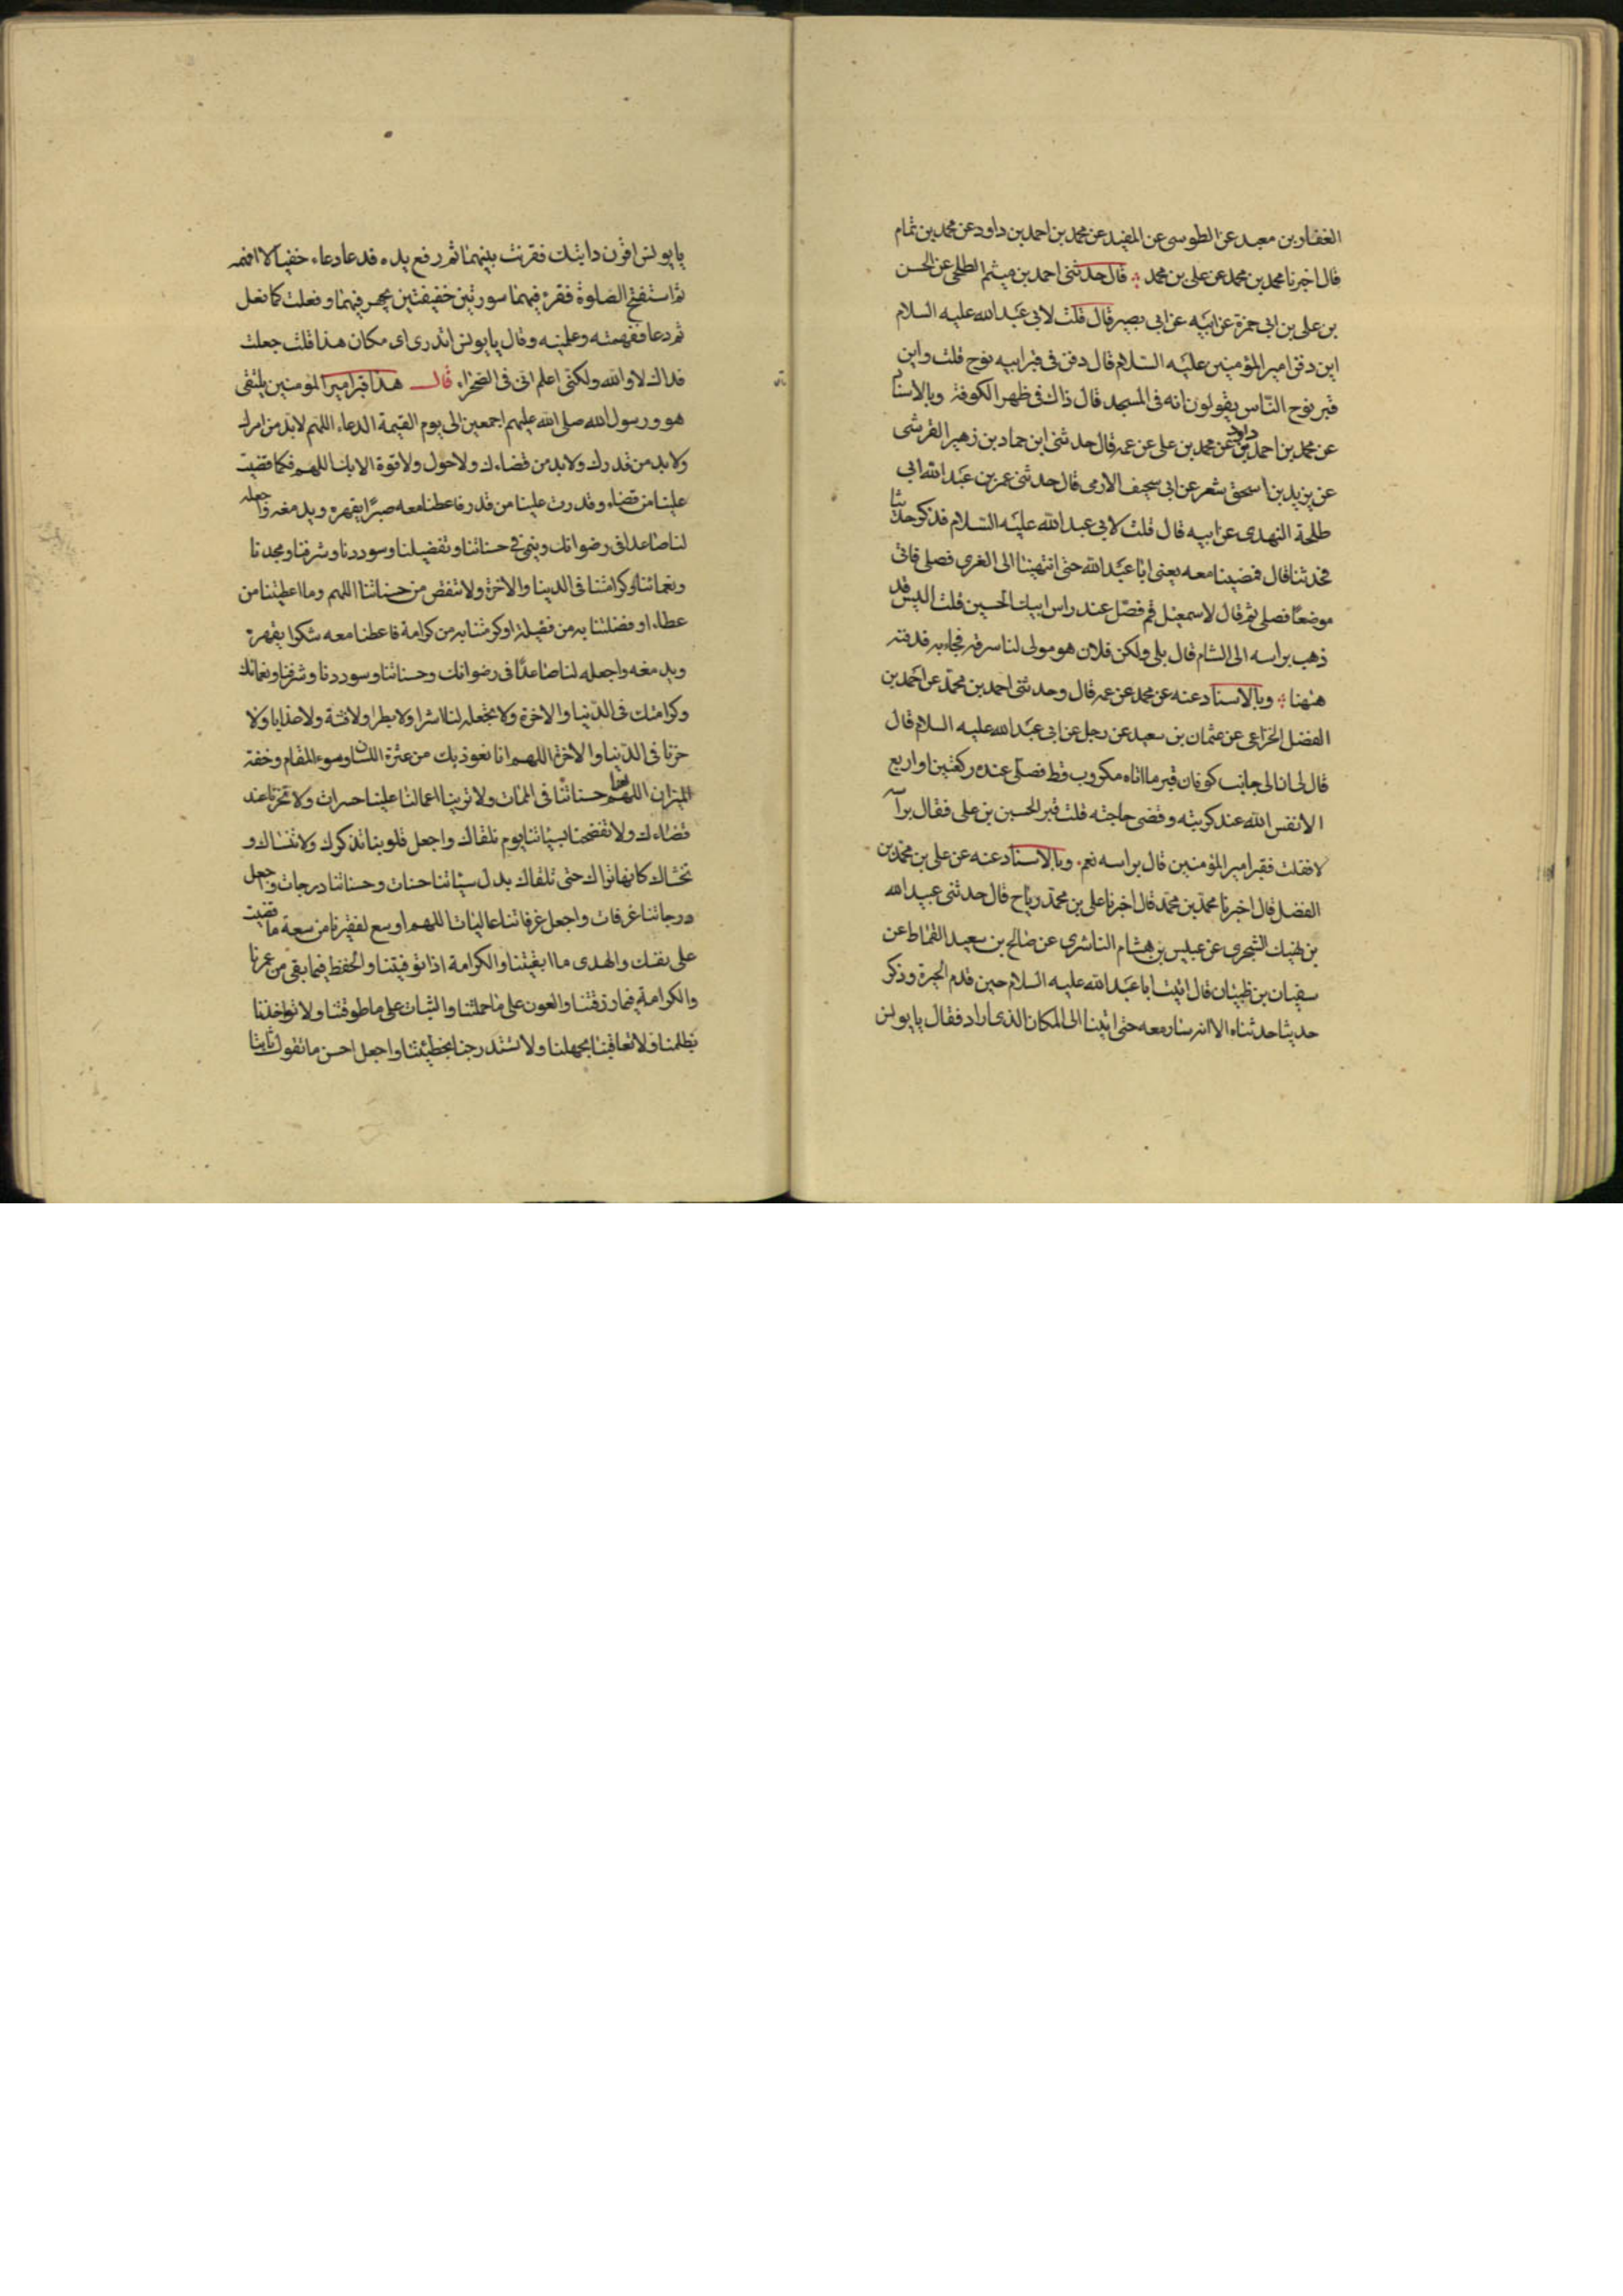 الغفار بن معبد عن الطوسي عن المفيد عن محمد بن احمد بن داود عن محمد بن تمام
قال اخبرنا محمد بن محمد عن علي بن محمد قال حدثني احمد بن ميثم الطلحي عن الحسن
بن علي بن ابي حمزة عن ابيه عن ابي بصير قال قلت لابي عبد الله عليه السلام
اين دفن امير المؤمنين عليه السلام قال دفن في قبر ابيه نوح قلت واين
قبر نوح الناس يقولون انه في المسجد قال ذاك في ظهر الكوفة وبالاسناد
عن محمد بن احمد بن داود عن محمد بن علي عن عمه قال حدثني ابن حماد بن زهير القرشي
عن يزيد بن اسحق شعر عن ابي سحيف الارمى قال حدثني عمر بن عبد الله ابي
طلحة النهدي عن ابيه قال قلت لابي عبد الله عليه السلام فذكر حديثا
فحدثنا قال فمضينا معه يعني ابا عبد الله حتى انتهينا الى الغري فصلى فاتى
موضعا فصلى ثم قال لاسمعيل قم فصل عند راس ابيك الحسين قلت اليس قد
ذهب براسه الى الشام قال بلى ولكن فلان هو مولى لنا سرقه فجاء به فدفنه
ههنا وبالاسناد عنه عن محمد عن عمه قال وحدثني احمد بن محمد عن احمد بن
الفضل الخزاعي عن عثمان بن سعيد عن رجل عن ابي عبد الله عليه السلام قال
قال لى ان الى جانب كوفان قبر ما اتاه مكروب قط فصلى عنده ركعتين او اربع
الا نفس الله عند كربته وقضى حاجته قلت قبر الحسين بن علي فقال برأسه
لا فقلت فقبر امير المؤمنين قال براسه نعم وبالاسناد عنه عن علي بن محمد بن
الفضل قال اخبرنا محمد بن محمد قال اخبرنا علي بن محمد رياح قال حدثني عبيد الله
بن نهيك الشجري عن عبيس بن هشام الناشري عن صالح بن سعيد القماط عن
سفيان بن ظبيان قال اتيت ابا عبد الله عليه السلام حين قدم الحيرة وذكر
حديثا حدثناه الا انه سار معه حتى اتينا الى المكان الذي اراد فقال يا يونس
يا يونس اقرن دابتك فقرنت بينهما ثم رفع يده فدعا دعاء خفيا لا افهمه
ثم استفتح الصلوة فقرء فيهما سورتين خفيفتين يجهر فيهما وفعلت كما فعل
ثم دعا ففهمته وعلمنيه وقال يا يونس اتدري اى مكان هذا قلت جعلت
فداك لا والله ولكنى اعلم انى في الصحراء قال هذا قبر امير المؤمنين يلتقى
هو ورسول الله صلى الله عليهم اجمعين الى يوم القيمة الدعاء اللهم لابد من امرك
ولابد من قدرك ولابد من قضاءك ولا حول ولا قوة الا بك اللهم فكما قضيت
علينا من قضاء وقدرت علينا من قدر فاعطنا معه صبرا يقهره ويدمغه واجعله
لنا صاعدا في رضوانك وينمى في حسناتنا وتفضيلنا وسوددنا وشرفنا ومجدنا
ونعمائنا وكرامتنا في الدنيا والاخرة ولا تنقص من حسناتنا اللهم وما اعطيتنا من
عطاء او فضلتنا به من فضيلة او كرمتنا به من كرامة فاعطنا معه شكرا يقهره
ويدمغه واجعله لنا صاعدا في رضوانك وحسناتنا وسوددنا وشرفنا ونعمائك
وكرامتك في الدنيا والاخرة ولا تجعله لنا اشرا ولا بطرا ولا فتنة ولا عذابا ولا
خزيا في الدنيا والاخرة اللهم انا نعوذ بك من عثرة اللسان وسوء المقام وخفة
الميزان اللهم لقنا حسناتنا في الممات ولا ترينا اعمالنا علينا حسرات ولا تخزنا عند
قضاءك ولا تفضحنا بسيئاتنا يوم نلقاك واجعل قلوبنا تذكرك ولا تنساك و
تخشاك كانها تراك حتى تلقاك بدل سيئاتنا حسنات وحسناتنا درجات واجعل
درجاتنا غرفات واجعل غرفاتنا عاليات اللهم اوسع لفقيرنا من سعة ما قضيت
على نفسك والهدى ما ابقيتنا والكرامة اذا توفيتنا والحفظ فيما بقى من عمرنا
والكرامة فيما رزقتنا والعون على ما حملتنا والثبات على ما طوقتنا ولا تؤاخذنا
بظلمنا ولا تعاقبنا بجهلنا ولا تستدرجنا بخطيئتنا واجعل احسن ما نقول ثابتا